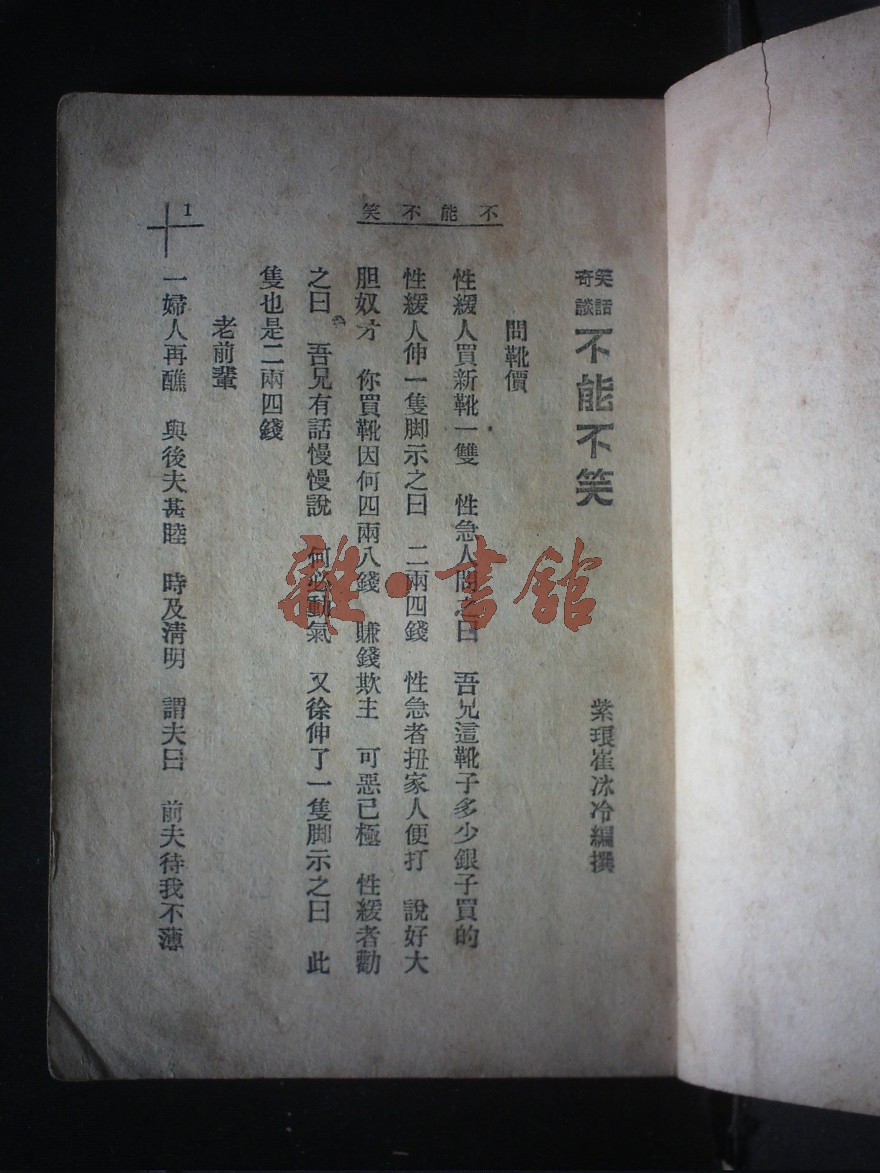 不能不笑
笑話
奇談
不能不笑
紫瓌崔冰冷編撰
問靴價
性緩人買新靴一雙　性急人問之曰　吾兄這靴子多少銀子買的
性緩人伸一隻脚示之曰　二兩四錢　性急者扭家人便打　說好大
胆奴才　你買靴因何四兩八錢　賺錢欺主　可惡已極　性緩者勸
之曰　吾兄有話慢慢說　何必動氣　又徐伸了一隻脚示之曰　此
隻也是二兩四錢
老前輩
一婦人再醮　與後夫甚睦　時及淸明　謂夫曰　前夫待我不薄
1
雜·書館